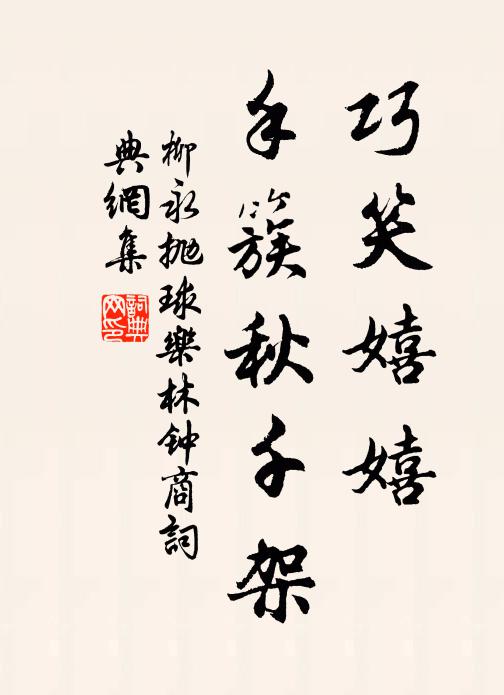 巧笑嬉嬉
手簇秋千架
柳永抛球樂林钟商詞
典網集
詞典
网印